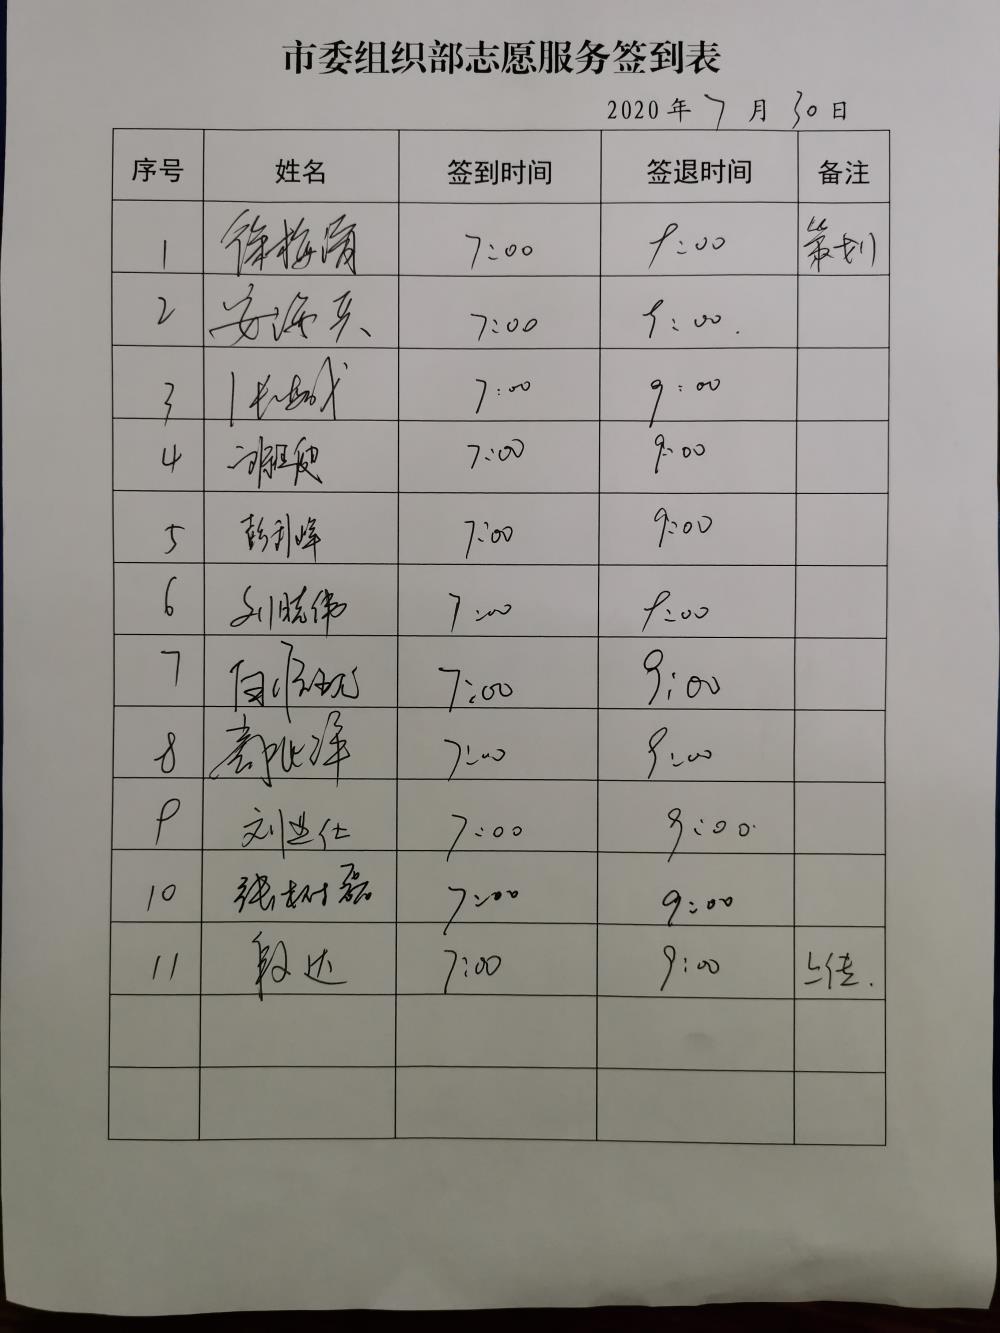 市委组织部志愿服务签到表
2020年7月30日
序号 姓名 签到时间 签退时间 备注
1 徐梅涓 7:00 9:00 策划
2 安海兵 7:00 9:00
3 7:00 9:00
4 7:00 9:00
5 彭利峰 7:00 9:00
6 刘晓伟 7:00 9:00
7 7:00 9:00
8 7:00 9:00
9 刘世仕 7:00 9:00
10 张树磊 7:00 9:00
11 段达 7:00 9:00 上传.